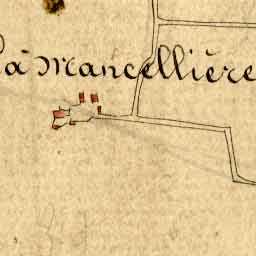 la Mancellière